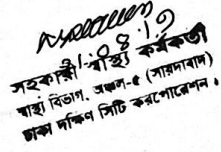 সহকারী স্বাস্থ্য কর্মকর্তা
স্বাস্থ্য বিভাগ, অঞ্চল-৫ (সায়দাবাদ)
ঢাকা দক্ষিণ সিটি করপোরেশন।